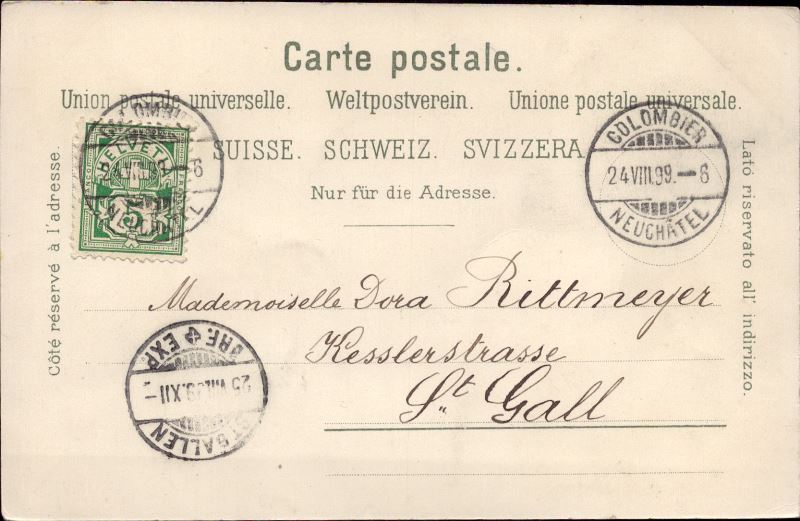 Carte postale.
Union postale universelle. Weltpostverein. Unione postale universale.
SUISSE. SCHWEIZ. SVIZZERA
Nur für die Adresse.
Côté réservé à l'adresse.
Lato riservato all' indirizzo.
HELVETIA
5
COLOMBIER
24 VIII.99.-6
NEUCHÂTEL
Mademoiselle Dora Rittmeyer
Kesslerstrasse
St. Gall
BRF. EXP.
25.VIII.99.XII-
ST GALLEN